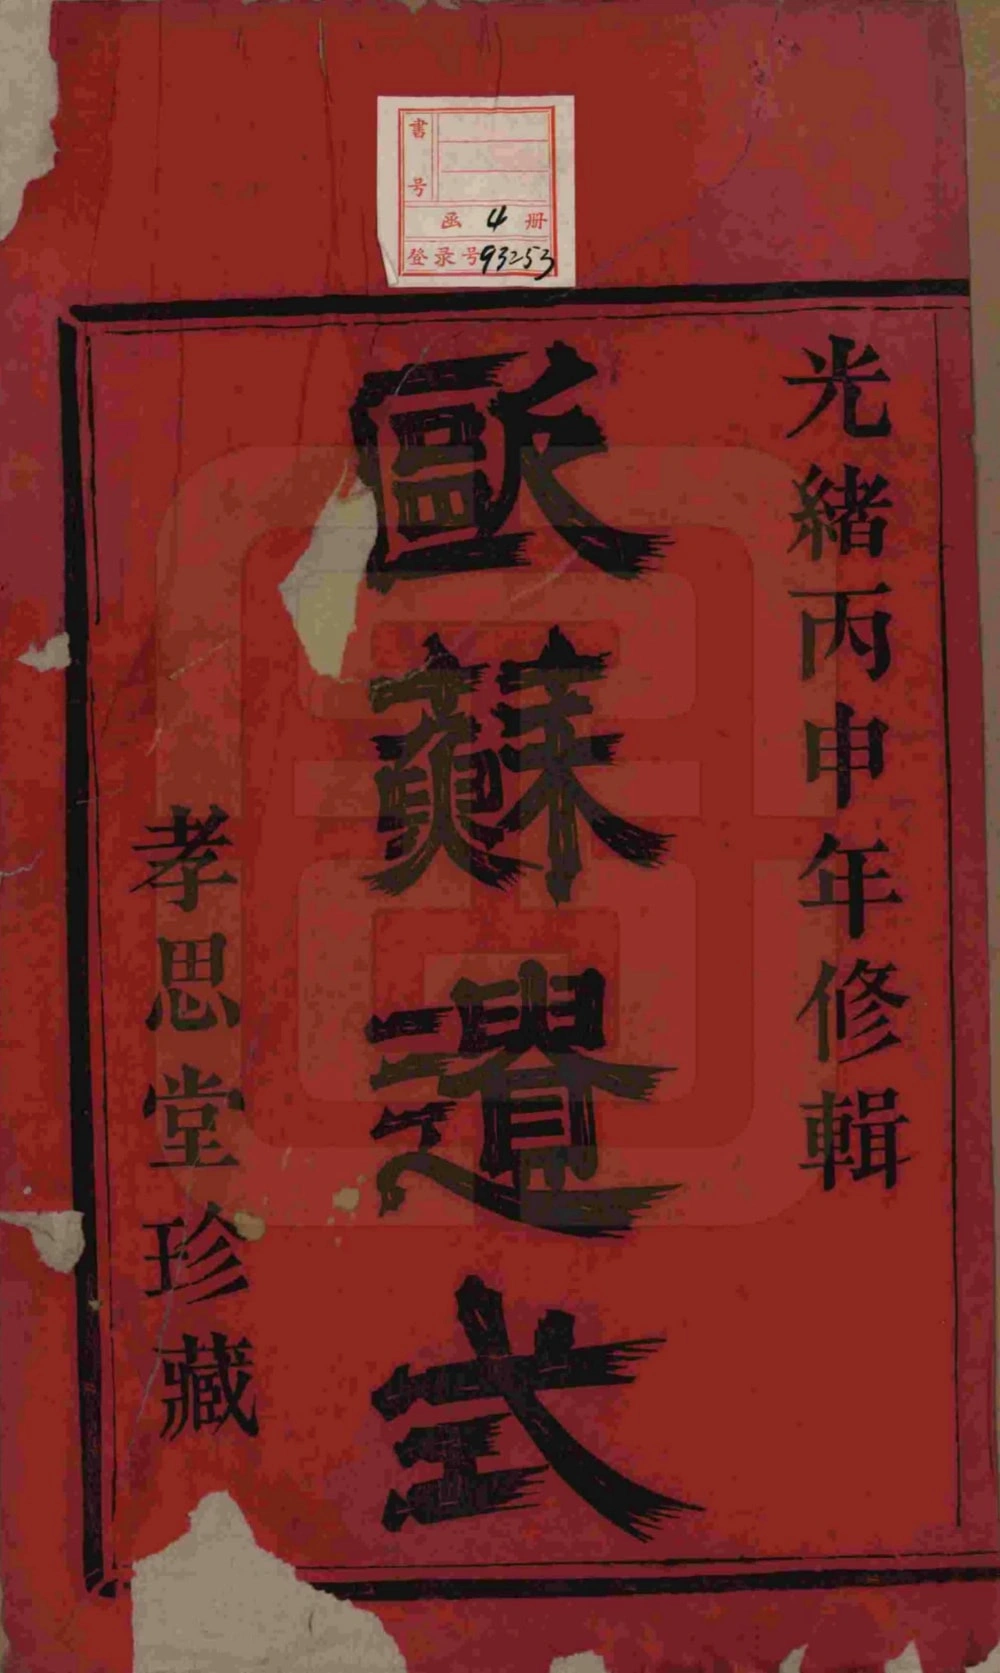 光緒丙申年修輯
歐蘇遺式
孝思堂珍藏
書号
函 4 册
登录号93253